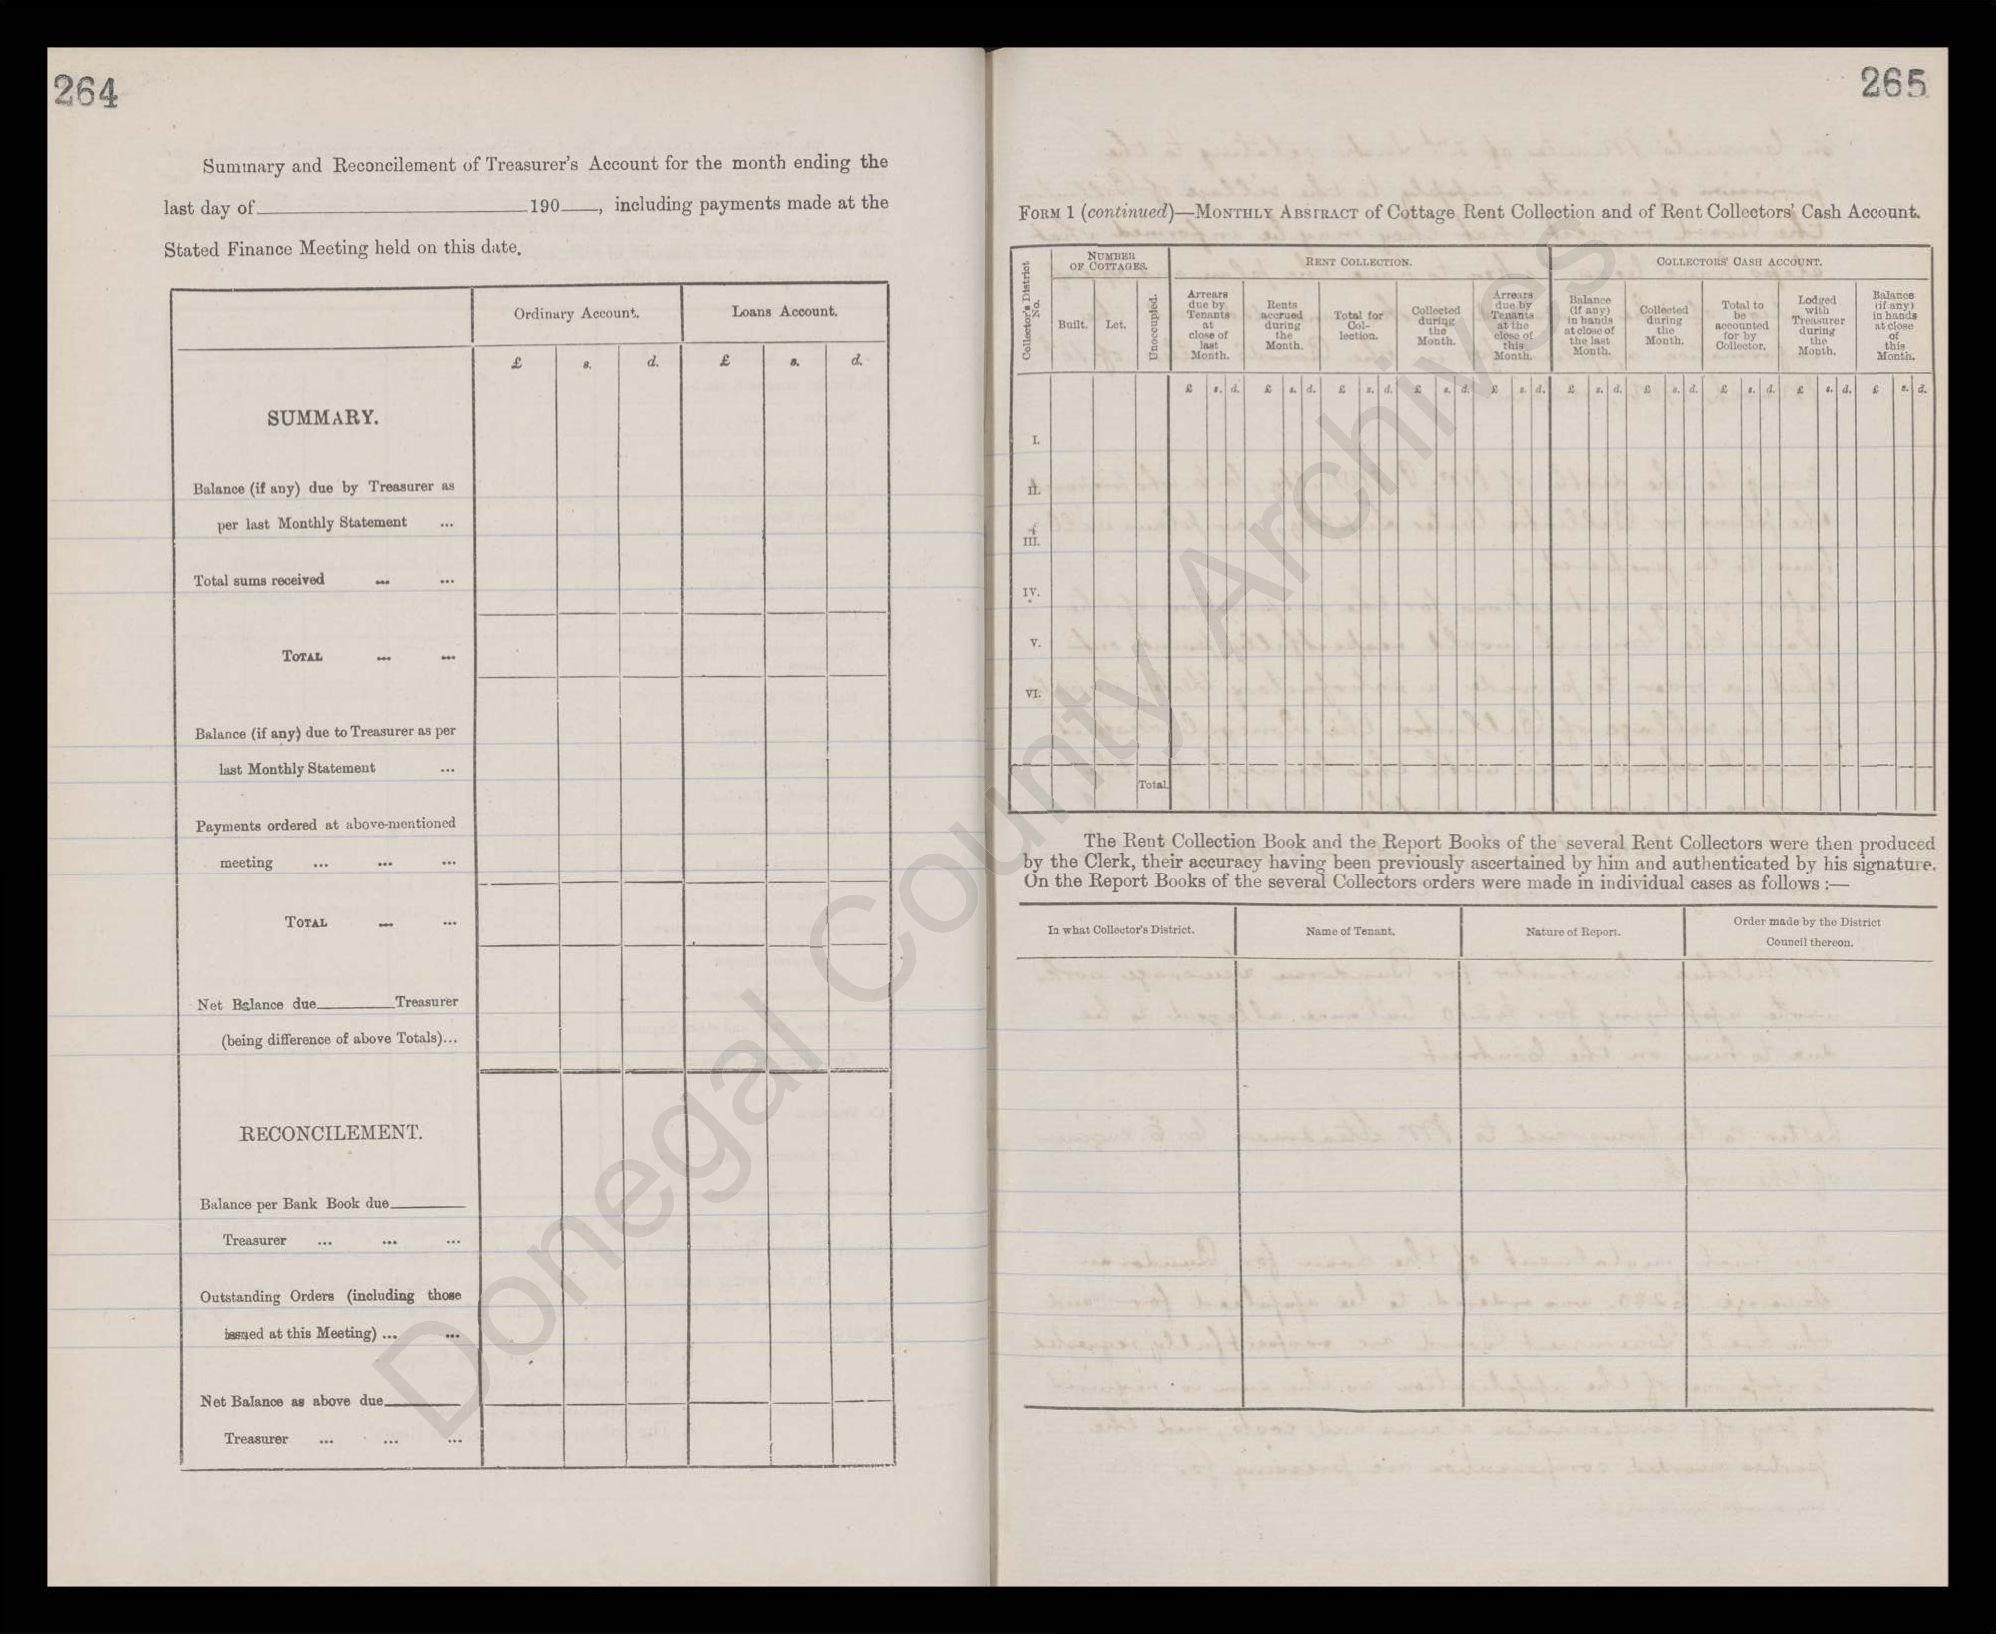 264
Summary and Reconcilement of Treasurer's Account for the month ending the
last day of 190 , including payments made at the
Stated Finance Meeting held on this date.
Ordinary Account. Loans Account.
£ s. d. £ s. d.
SUMMARY.
Balance (if any) due by Treasurer as
per last Monthly Statement ...
Total sums received ... ...
TOTAL ... ...
Balance (if any) due to Treasurer as per
last Monthly Statement ...
Payments ordered at above-mentioned
meeting ... ... ...
TOTAL ... ...
Net Balance due Treasurer
(being difference of above Totals)...
RECONCILEMENT.
Balance per Bank Book due
Treasurer ... ... ...
Outstanding Orders (including those
issued at this Meeting) ... ...
Net Balance as above due
Treasurer ... ... ...
265
FORM 1 (continued)—MONTHLY ABSTRACT of Cottage Rent Collection and of Rent Collectors' Cash Account.
Collector's District No.
NUMBER OF COTTAGES.
RENT COLLECTION.
COLLECTORS' CASH ACCOUNT.
Built.
Let.
Unoccupied.
Arrears due by Tenants at close of last Month.
Rents accrued during the Month.
Total for Col-lection.
Collected during the Month.
Arrears due by Tenants at the close of this Month.
Balance (if any) in hands at close of the last Month.
Collected during the Month.
Total to be accounted for by Collector.
Lodged with Treasurer during the Month.
Balance (if any) in hands at close of this Month.
£ s. d. £ s. d. £ s. d. £ s. d. £ s. d. £ s. d. £ s. d. £ s. d. £ s. d. £ s. d.
I.
II.
III.
IV.
V.
VI.
Total.
The Rent Collection Book and the Report Books of the several Rent Collectors were then produced
by the Clerk, their accuracy having been previously ascertained by him and authenticated by his signature.
On the Report Books of the several Collectors orders were made in individual cases as follows :—
In what Collector's District. Name of Tenant. Nature of Report. Order made by the District
Council thereon.
Donegal County Archives